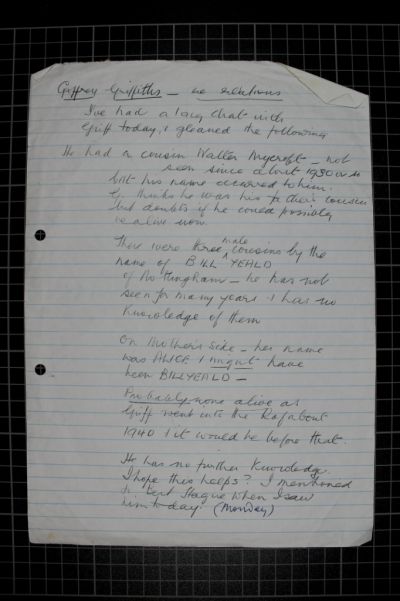 Griffiths – re relations
I've had a long chat with
Griff today, & gleaned the following
He had a cousin Walter – not
seen since about 1930 or so
but his name occurred to him.
He thinks he was his father's cousin
but doubts if he could possibly
be alive now.
There were three male cousins by the
name of BILLYEALD
of Nottingham – he has not
seen for many years & has no
knowledge of them
On Mother's side – her name
was ALICE & might have
been BILLYEALD –
Probably none alive as
Griff went into the Raf about
1940 & it would be before that.
He has no further knowledge.
I hope this helps? I mentioned
it to when I saw
him today. (Monday)